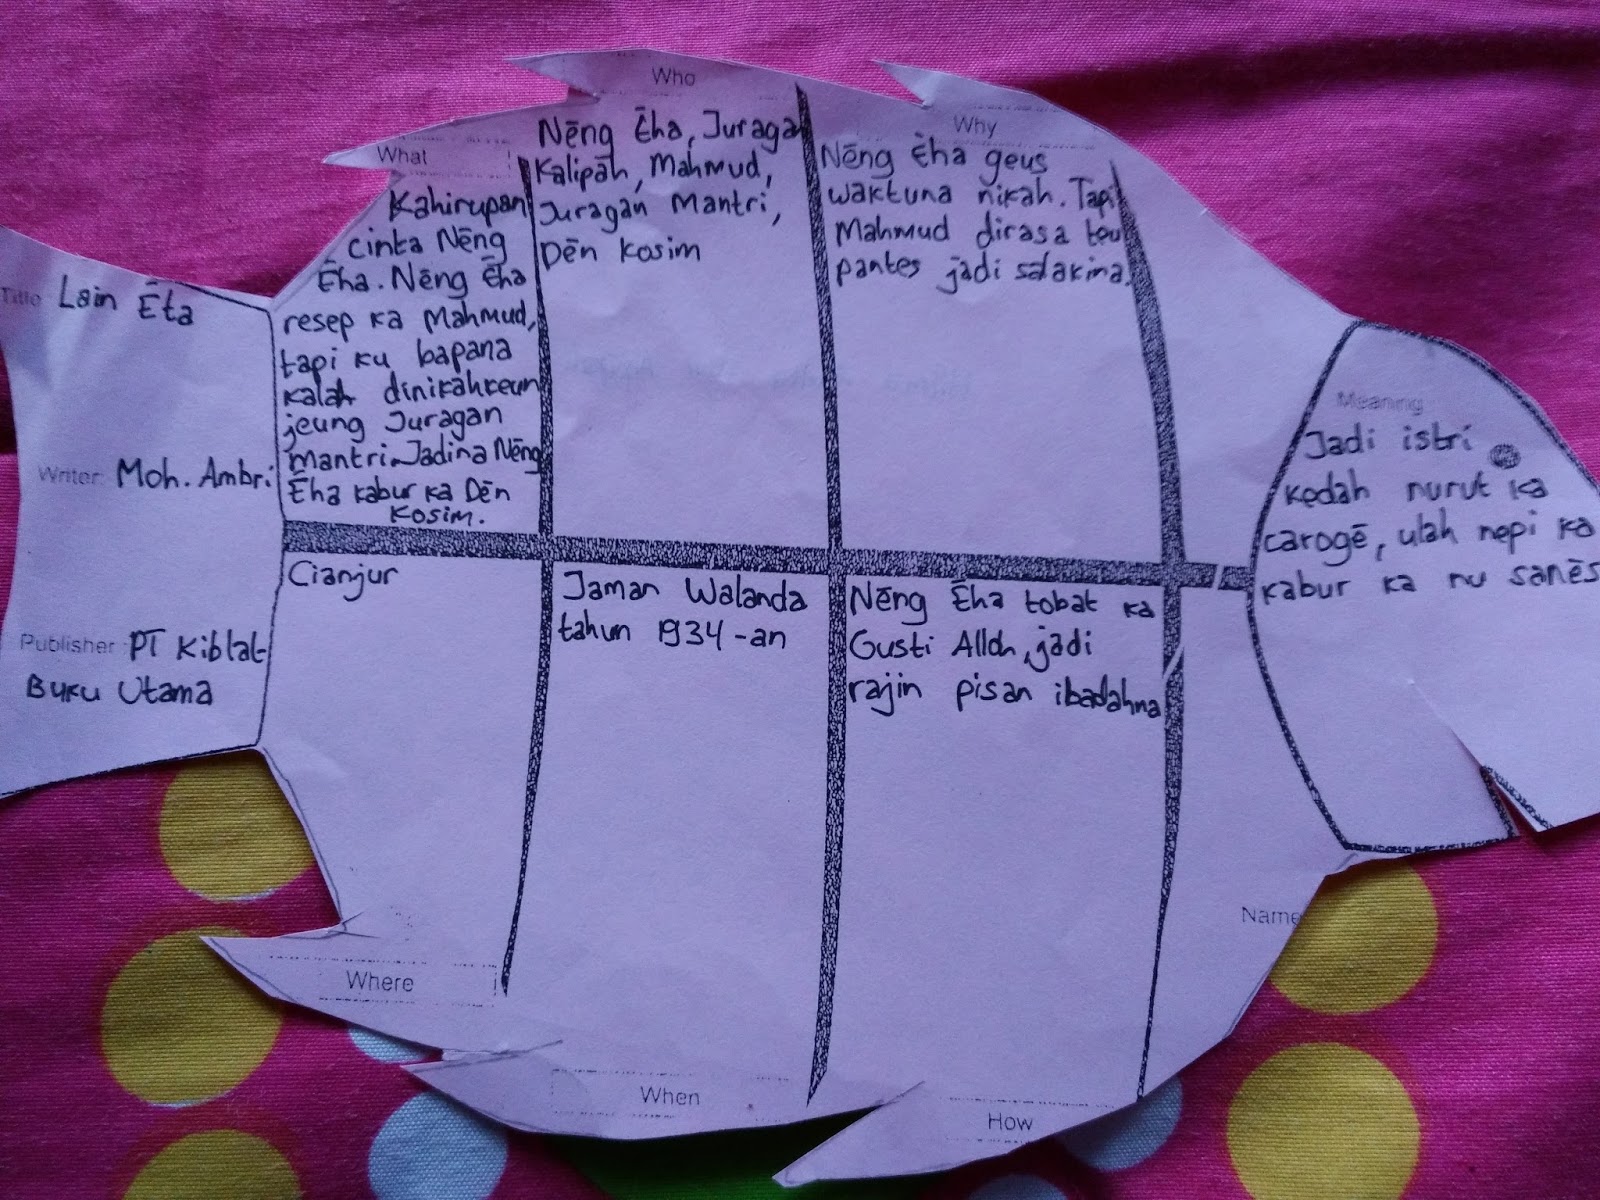 Title Lain Ēta
Writer: Moh. Ambri
Publisher PT Kiblat
Buku Utama
What
Kahirupan
cinta Nēng
Ēha. Nēng Ēha
resep ka Mahmud,
tapi ku bapana
kalah dinikahkeun
jeung Juragan
mantri. Jadina Nēng
Ēha kabur ka Dēn
Kosim.
Who
Nēng Ēha, Juragan
Kalipah, Mahmud,
Juragan Mantri,
Dēn Kosim
Why
Nēng Ēha geus
waktuna nikah. Tapi
Mahmud dirasa teu
pantes jadi salakina.
Cianjur
Where
Jaman Walanda
tahun 1934-an
When
Nēng Ēha tobat ka
Gusti Alloh, jadi
rajin pisan ibadahna
How
Meaning
Jadi istri
kedah nurut ka
carogē, ulah nepi ka
kabur ka nu sanēs
Name